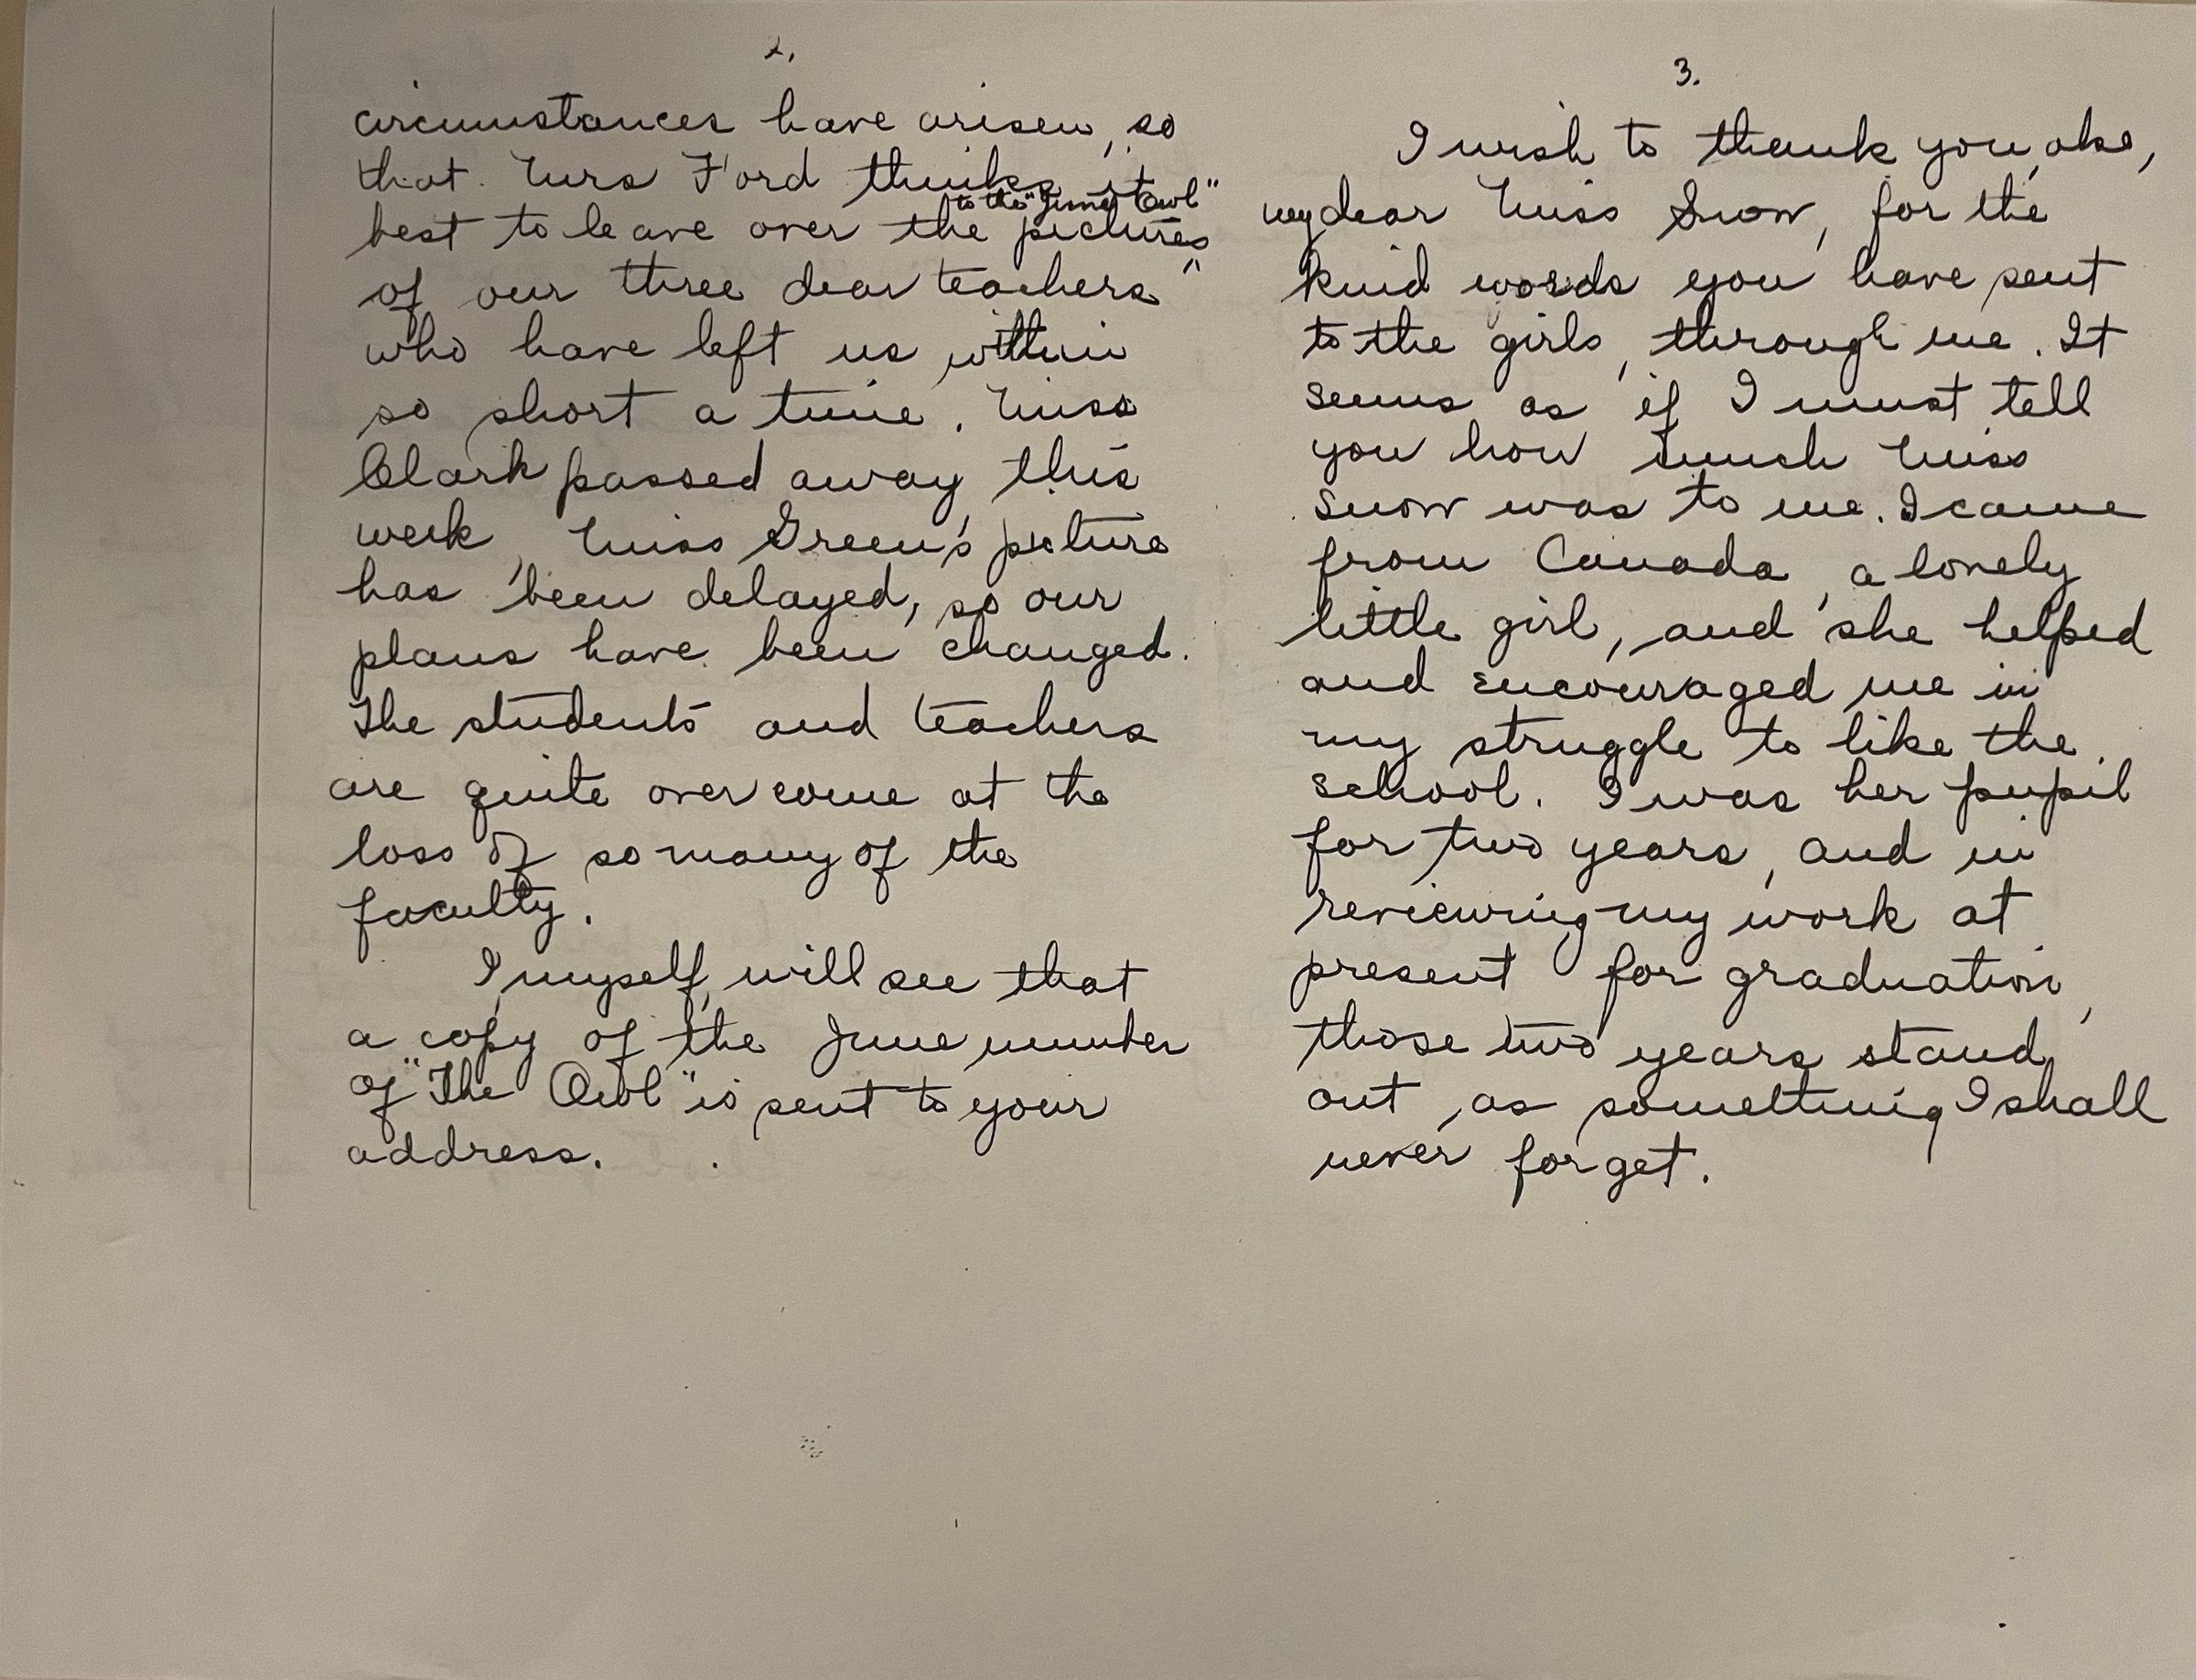 2.
circumstances have arisen, so
that Mrs Ford thinks it
to the "June Owl"
best to leave over the pictures
of our three dear teachers
who have left us within
so short a time. Miss
Clark passed away this
week, Miss Green's picture
has been delayed, so our
plans have been changed.
The students and teachers
are quite overcome at the
loss of so many of the
faculty.
I, myself, will see that
a copy of the June number
of "The Owl" is sent to your
address.
3.
I wish to thank you, also,
my dear Miss Snow, for the
kind words you have sent
to the girls, through me. It
seems as if I must tell
you how much Miss
Snow was to me. I came
from Canada, a lonely
little girl, and she helped
and encouraged me in
my struggle to like the
school. I was her pupil
for two years, and in
reviewing my work at
present for graduation,
those two years stand
out, as something I shall
never forget.